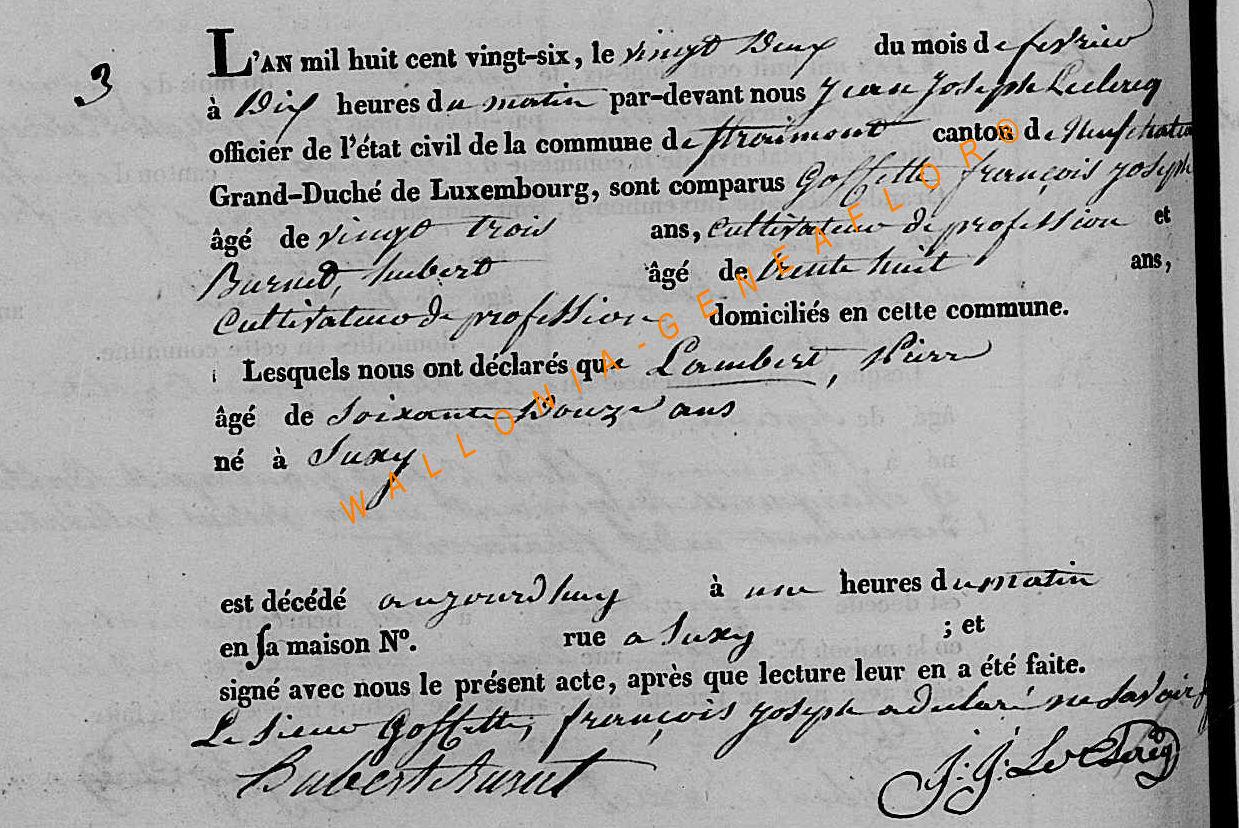 3
L'AN mil huit cent vingt-six, le vingt deux du mois de fevrier
à Dix heures du matin par-devant nous Jean Joseph Leclercq
officier de l'état civil de la commune de Straimont canton de Neufchateau
Grand-Duché de Luxembourg, sont comparus Goffette françois joseph
âgé de vingt trois ans, cultivateur de profession et
Burnet, hubert âgé de trente huit ans,
Cultivateur de profession domiciliés en cette commune.
Lesquels nous ont déclarés que Lambert, Pierre
âgé de Soixante Douze ans
né à Suxy
est décédé aujourdhuy à une heures du matin
en sa maison N°. rue a Suxy ; et
signé avec nous le présent acte, après que lecture leur en a été faite.
Le sieur Goffette, françois joseph a declaré ne savoir
Hubert Burnet J: J: Leclercq
WALLONIA-GENEAFLORO